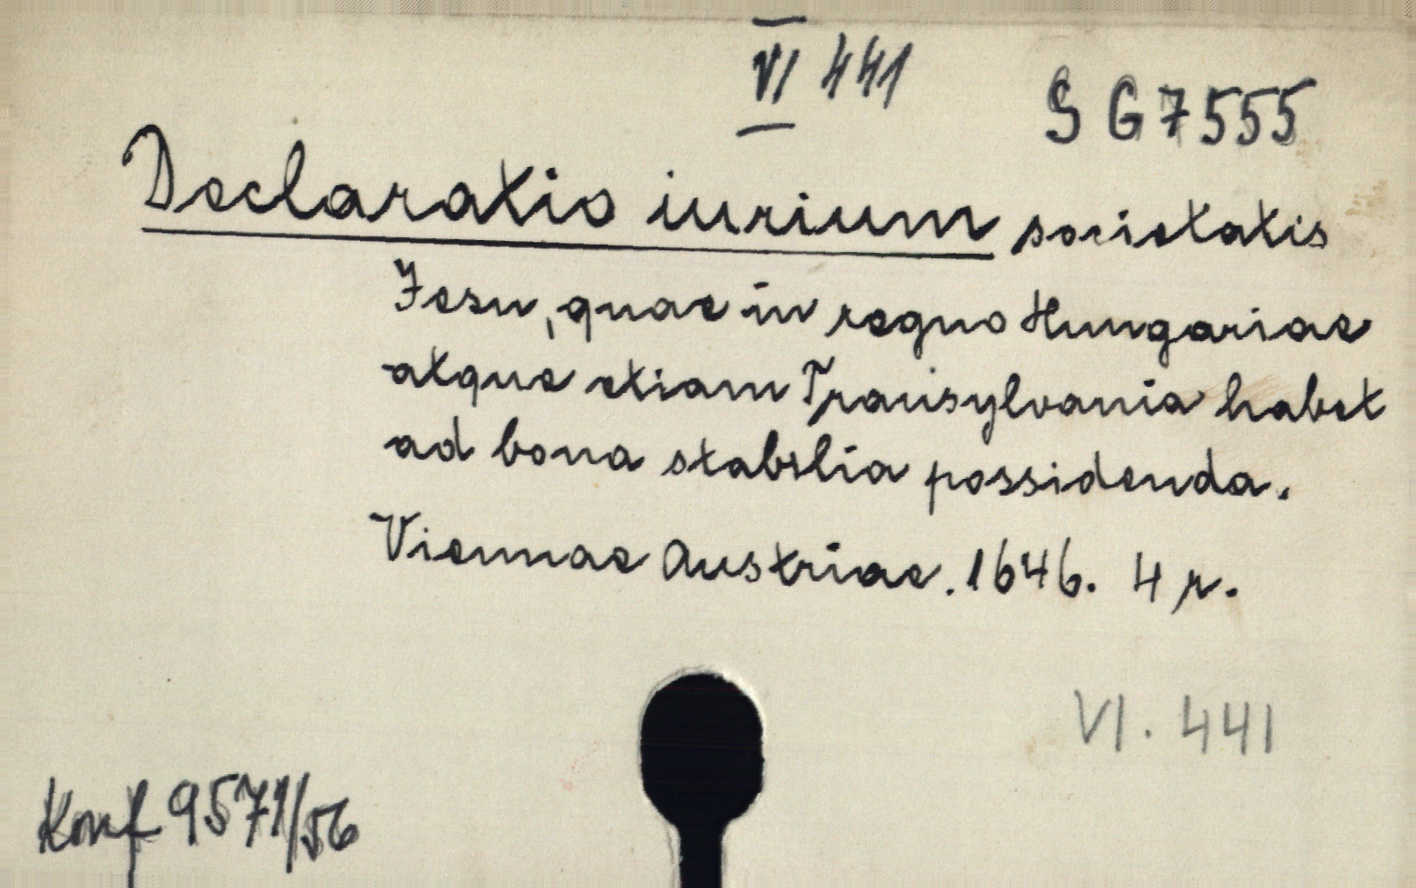 VI 441
S G 7555
Declaratio iurium societatis
Jesu, quae in regno Hungariae
atque etiam Transylvania habet
ad bona stabilia possidenda.
Viennae Austriae. 1646. 4 r.
VI. 441
Konf 9571/56